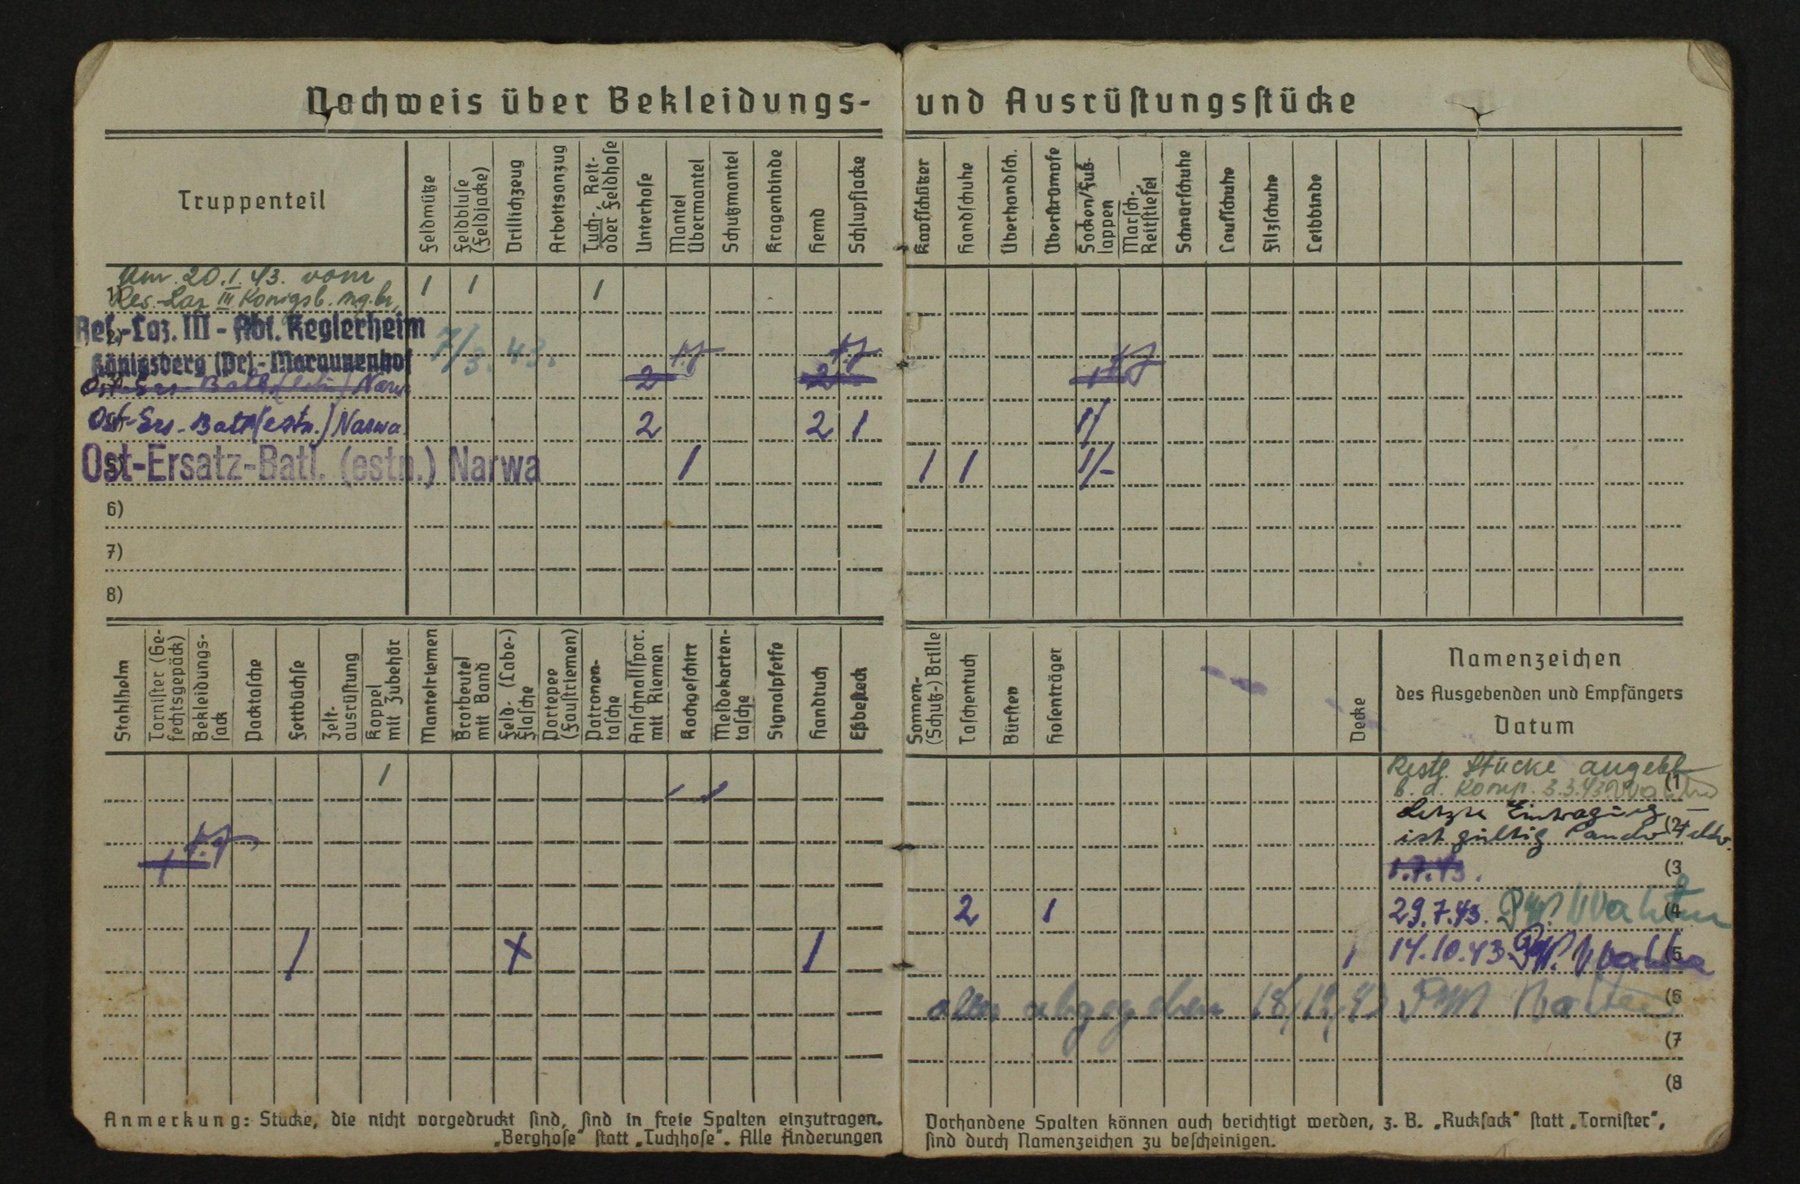 Nachweis über Bekleidungs- und Ausrüstungsstücke
Truppenteil
Feldmütze
Feldbluse (Feldjacke)
Drillichzeug
Arbeitsanzug
Tuch-, Reit- oder Feldhose
Unterhose
Mantel Übermantel
Schutzmantel
Kragenbinde
Hemd
Schlupfjacke
Kopfschützer
Handschuhe
Überhandsch.
Überstrümpfe
Socken/Fußlappen
Marsch-, Reitstiefel
Schnürschuhe
Laufschuhe
Filzschuhe
Leibbinde
Am 20.1.43. vom
1) Res.-Laz III Königsb. 1 1 1
Res.-Laz. III - Abt. Keglerheim
Königsberg (Pr)-Maraunenhof 7/3.43.
Ost-Ers-Batl (estn.) Narwa 2 2 1
Ost-Ers-Batl (estn.) Narwa 2 2 1 1/
Ost-Ersatz-Batl. (estn.) Narwa 1 1 1 1/-
6)
7)
8)
Stahlhelm
Tornister (Gefechtsgepäck)
Bekleidungssack
Packtasche
Fettbüchse
Zeltausrüstung
Koppel mit Zubehör
Mantelriemen
Brotbeutel mit Band
Feld- (Labe-) Flasche
Portepee (Faustriemen)
Patronentasche
Anschnallspor. mit Riemen
Kochgeschirr
Meldekartentasche
Signalpfeife
Handtuch
Eßbesteck
Sonnen- (Schutz-) Brille
Taschentuch
Bürsten
Hosenträger
Decke
Namenzeichen
des Ausgebenden und Empfängers
Datum
1 Restl. Stücke angebl.
b. d. Komp. 3.3.43 (1
Letzte Eintragung
ist gültig (2
1 1.7.43. (3
2 1 29.7.43. (4
1 x 1 1 14.10.43 (5
alles abgegeben 18/12.43 (6
(7
(8
Anmerkung: Stücke, die nicht vorgedruckt sind, sind in freie Spalten einzutragen. Vorhandene Spalten können auch berichtigt werden, z. B. „Rucksack" statt „Tornister",
„Berghose" statt „Tuchhose". Alle Änderungen sind durch Namenzeichen zu bescheinigen.